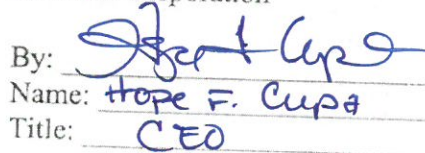 By:
Name: Hope F. Cupa
Title: CEO